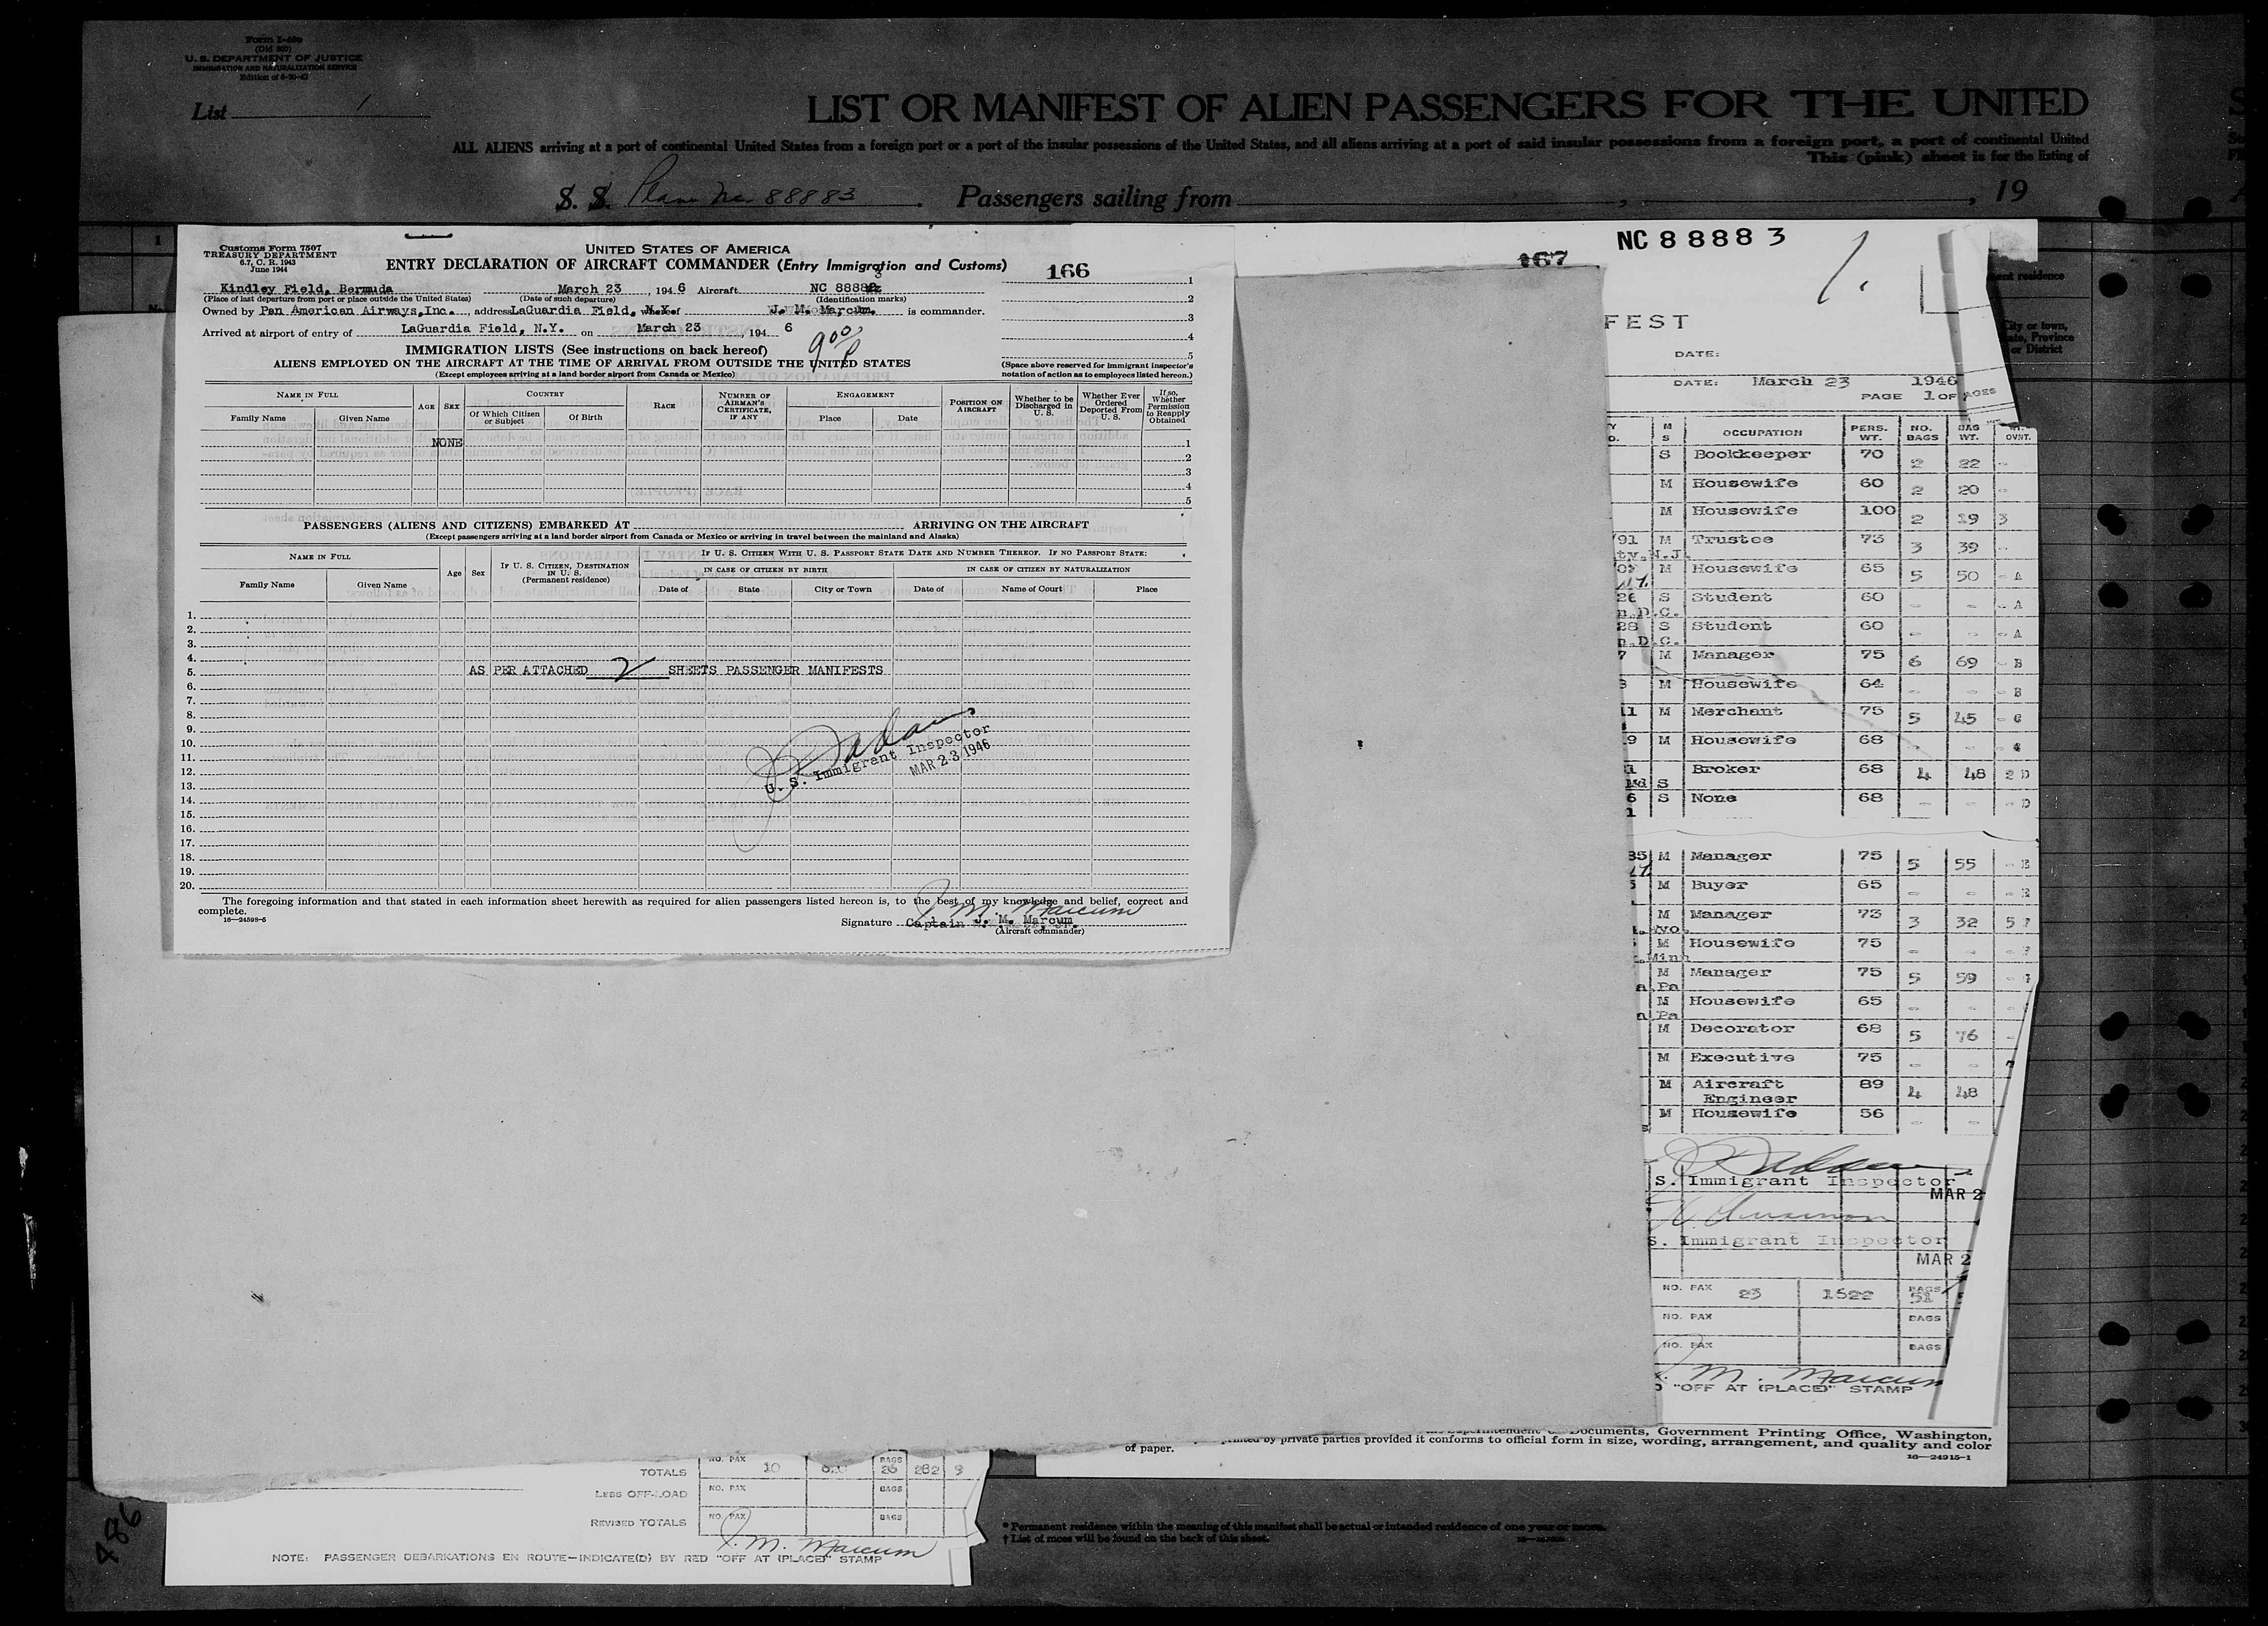 Form I-466
(Old 500)
U. S. DEPARTMENT OF JUSTICE
IMMIGRATION AND NATURALIZATION SERVICE
List 1
LIST OR MANIFEST OF ALIEN PASSENGERS FOR THE UNITED
ALL ALIENS arriving at a port of continental United States from a foreign port or a port of the insular possessions of the United States, and all aliens arriving at a port of said insular possessions from a foreign port, a port of continental United
This (pink) sheet is for the listing of
S. S. Plane No. 88883 . Passengers sailing from , , 19
Customs Form 7507
TREASURY DEPARTMENT
6.7, C. R. 1943
June 1944
UNITED STATES OF AMERICA
ENTRY DECLARATION OF AIRCRAFT COMMANDER (Entry Immigration and Customs)
166
Kindley Field, Bermuda March 23 , 194 6 Aircraft NC 8888
3
(Place of last departure from port or place outside the United States) (Date of such departure) (Identification marks)
Owned by Pan American Airways,Inc. , address LaGuardia Field, N.Y. whereof J. M. Marcum. is commander.
Arrived at airport of entry of LaGuardia Field, N.Y. on March 23 , 194 6
9 00 P
IMMIGRATION LISTS (See instructions on back hereof)
ALIENS EMPLOYED ON THE AIRCRAFT AT THE TIME OF ARRIVAL FROM OUTSIDE THE UNITED STATES
(Except employees arriving at a land border airport from Canada or Mexico)
1
2
3
4
5
(Space above reserved for immigrant inspector's
notation of action as to employees listed hereon.)
NAME IN FULL
Family Name Given Name
AGE SEX
COUNTRY
Of Which Citizen or Subject Of Birth
RACE
NUMBER OF AIRMAN'S CERTIFICATE, IF ANY
ENGAGEMENT
Place Date
POSITION ON AIRCRAFT
Whether to be Discharged in U. S.
Whether Ever Ordered Deported From U. S.
If so, Whether Permission to Reapply Obtained
NONE
1
2
3
4
5
PASSENGERS (ALIENS AND CITIZENS) EMBARKED AT ARRIVING ON THE AIRCRAFT
(Except passengers arriving at a land border airport from Canada or Mexico or arriving in travel between the mainland and Alaska)
NAME IN FULL
Family Name Given Name
Age Sex
IF U. S. CITIZEN, DESTINATION IN U. S. (Permanent residence)
IF U. S. CITIZEN WITH U. S. PASSPORT STATE DATE AND NUMBER THEREOF. IF NO PASSPORT STATE:
IN CASE OF CITIZEN BY BIRTH IN CASE OF CITIZEN BY NATURALIZATION
Date of State City or Town Date of Name of Court Place
1.
2.
3.
4.
5. AS PER ATTACHED 2 SHEETS PASSENGER MANIFESTS
6.
7.
8.
9.
10.
11.
12.
13.
14.
15.
16.
17.
18.
19.
20.
U. S. Immigrant Inspector
MAR 23 1946
The foregoing information and that stated in each information sheet herewith as required for alien passengers listed hereon is, to the best of my knowledge and belief, correct and
complete.
16—24598-5
J. M. Marcum
Signature Captain J. M. Marcum.
(Aircraft commander)
167
NC 88883
1.
FEST
DATE:
DATE: March 23 1946
PAGE 1 OF PAGES
M S OCCUPATION PERS. WT. NO. BAGS BAG WT. WT. OVNT.
S Bookkeeper 70 2 22 -
M Housewife 60 2 20 -
M Housewife 100 2 19 3
91 M Trustee 73 3 39 -
ty.N.J.
M Housewife 65 5 50 - A
26 S Student 60 - - - A
n.D.C.
28 S Student 60 - - - A
n.D.C.
7 M Manager 75 6 69 - B
M Housewife 64 - - - B
11 M Merchant 75 5 45 - C
9 M Housewife 68 - - - C
1 Broker 68 4 48 2 D
Md S
6 S None 68 - - - D
1
35 M Manager 75 5 55 - E
M Buyer 65 - - - E
M Manager 73 3 32 5 F
Wyo.
M Housewife 75 - - - F
.Minn
M Manager 75 5 59 -
a.Pa
M Housewife 65 - - -
a Pa
M Decorator 68 5 76 -
M Executive 75 - -
M Aircraft Engineer 89 4 48
M Housewife 56 - -
S. Immigrant Inspector
MAR 2
S. Immigrant Inspector
MAR 2
NO. PAX 23 1522 BAGS 51
NO. PAX BAGS
NO. PAX BAGS
M. Marcum
"OFF AT (PLACE)" STAMP
Documents, Government Printing Office, Washington,
of paper. printed by private parties provided it conforms to official form in size, wording, arrangement, and quality and color
16—24915-1
TOTALS NO. PAX 10 BAGS 26 282 9
LESS OFF-LOAD NO. PAX BAGS
REVISED TOTALS NO. PAX BAGS
J. M. Marcum
NOTE: PASSENGER DEBARKATIONS EN ROUTE—INDICATE(D) BY RED "OFF AT (PLACE)" STAMP
* Permanent residence within the meaning of this manifest shall be actual or intended residence of one year or more.
† List of races will be found on the back of this sheet.
486